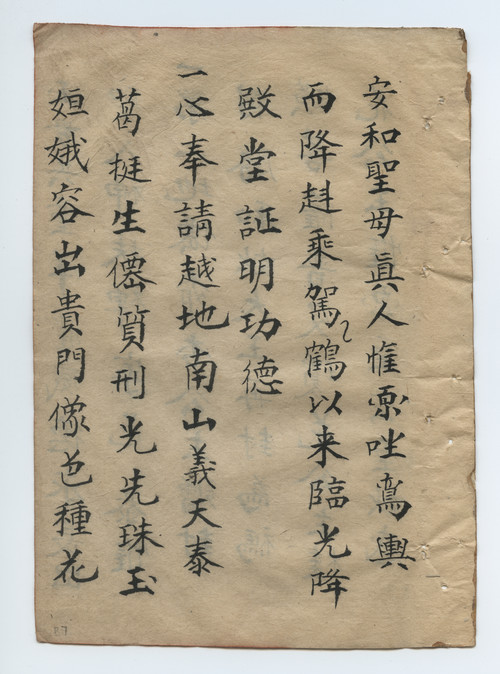 安和聖母眞人惟𠢆唑鸞輿
而降赳乘駕鶴以来臨光降
殿堂証明功德
一心奉請越地南山義天泰
葛挺生僊質刑光先珠玉
姮娥容出貴門像邑種花